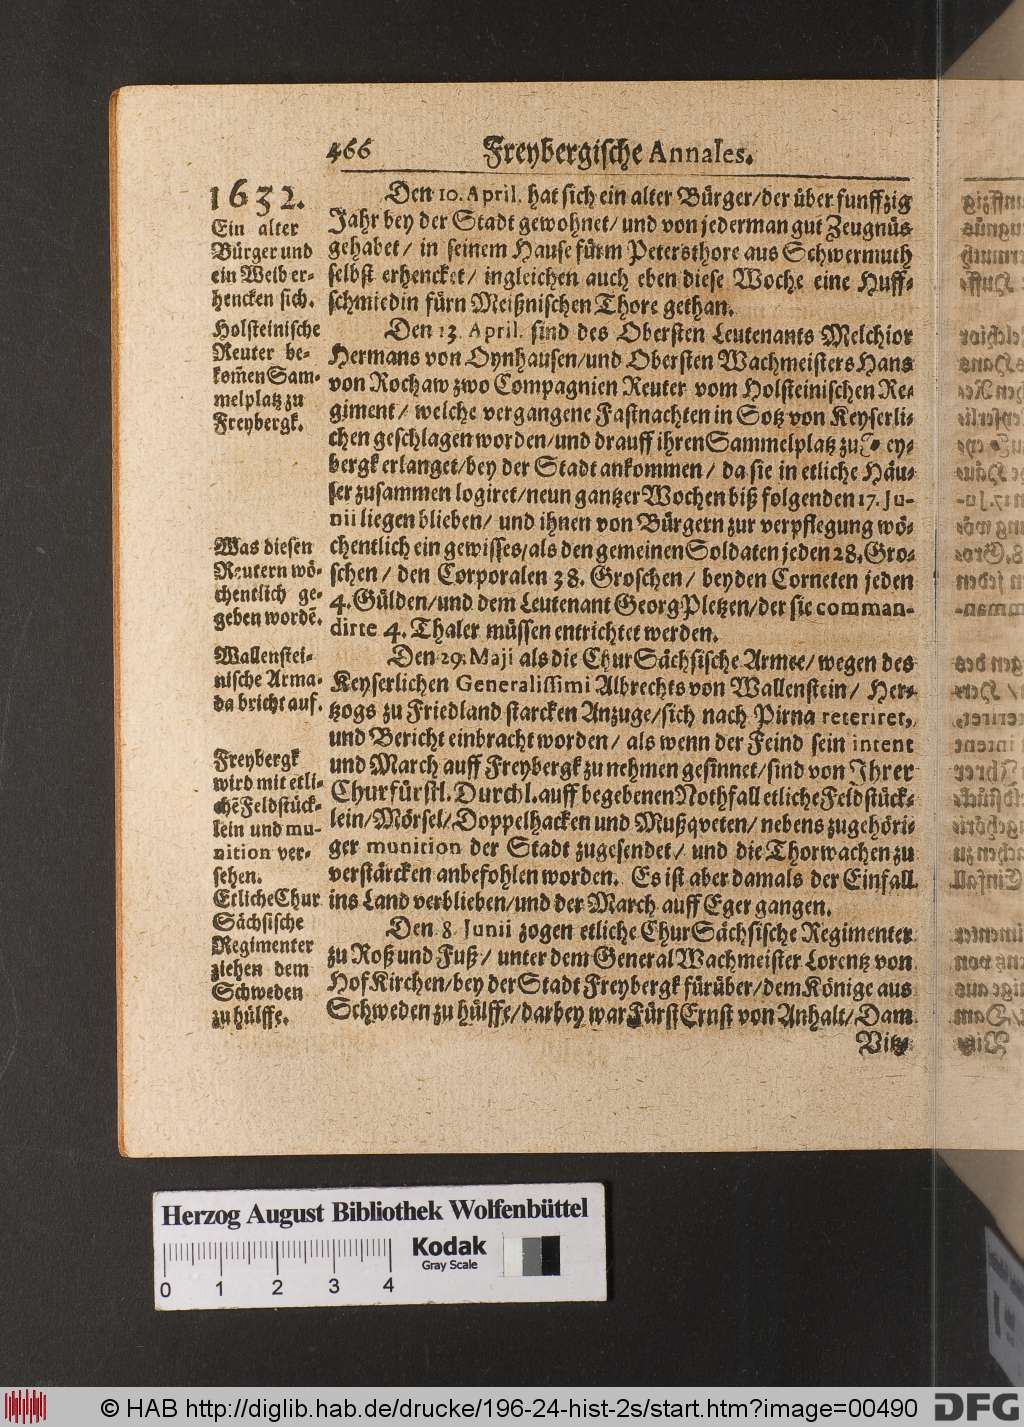 466 Freybergische Annales.
1632.
Ein alter
Bürger und
ein Weib er-
hencken sich.
Holsteinische
Reuter be-
kom̃en Sam-
melplatz zu
Freybergk.
Was diesen
Reutern wö-
chentlich ge-
geben wordẽ.
Wallenstei-
nische Arma-
da bricht auf.
Freybergk
wird mit etli-
chẽ Feldstück-
lein und mu-
nition ver-
sehen.
Etliche Chur
Sächsische
Regimenter
ziehen dem
Schweden
zu hülffe.
Den 10. April. hat sich ein alter Bürger/der über funffzig
Jahr bey der Stadt gewohnet/ und von jederman gut Zeugnüs
gehabet/ in seinem Hause fürm Petersthore aus Schwermuth
selbst erhencket/ ingleichen auch eben diese Woche eine Huff-
schmiedin fürn Meißnischen Thore gethan.
Den 13. April. sind des Obersten Leutenants Melchior
Hermans von Oynhausen/und Obersten Wachmeisters Hans
von Rochaw zwo Compagnien Reuter vom Holsteinischen Re-
giment/ welche vergangene Fastnachten in Sotz von Keyserli-
chen geschlagen worden/und drauff ihren Sammelplatz zu Frey-
bergk erlanget/bey der Stadt ankommen/ da sie in etliche Häu-
ser zusammen logiret/neun gantzer Wochen biß folgenden 17. Ju-
nii liegen blieben/ und ihnen von Bürgern zur verpflegung wö-
chentlich ein gewisses/als den gemeinen Soldaten jeden 28. Gro-
schen/ den Corporalen 38. Groschen/ beyden Corneten jeden
4. Gülden/und dem Leutenant Georg Pletzen/der sie comman-
dirte 4. Thaler müssen entrichtet werden.
Den 29. Maji als die Chur Sächsische Armee/ wegen des
Keyserlichen Generalissimi Albrechts von Wallenstein/ Her-
tzogs zu Friedland starcken Anzuge/sich nach Pirna reteriret,
und Bericht einbracht worden/ als wenn der Feind sein intent
und March auff Freybergk zu nehmen gesinnet/sind von Ihrer
Churfürstl. Durchl. auff begebenen Nothfall etliche Feldstück-
lein/Mörsel/Doppelhacken und Mußqveten/ nebens zugehöri-
ger munition der Stadt zugesendet/ und die Thorwachen zu
verstärcken anbefohlen worden. Es ist aber damals der Einfall
ins Land verblieben/und der March auff Eger gangen.
Den 8 Junii zogen etliche Chur Sächsische Regimenter
zu Roß und Fuß/ unter dem General Wachmeister Lorentz von
Hof Kirchen/bey der Stadt Freybergk fürüber/dem Könige aus
Schweden zu hülffe/darbey war Fürst Ernst von Anhalt/ Dam
Vitz-
Herzog August Bibliothek Wolfenbüttel
Kodak
Gray Scale
0 1 2 3 4
© HAB http://diglib.hab.de/drucke/196-24-hist-2s/start.htm?image=00490
DFG